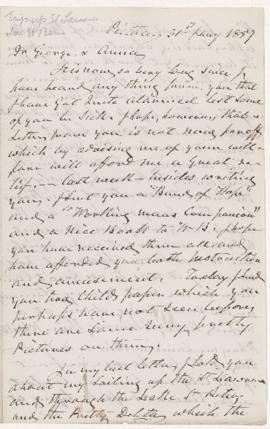 31st Jany 1859
Dr George & Annie
It is now so very long since I
have heard any thing from you that
I have got quite alarmed lest some
of you be sick. I hope, however, that a
letter from you is not now far off
which by advising me of your wel-
fare will afford me a great re-
lief. — last week besides writing
you, I sent you a "Band of Hope"
and a "Working mans Companion"
and a nice Book to W. B. I hope
you have received them all and
have afforded you both instruction
and amusement. Today I send
you two Childs papers which you
perhaps have not seen before
there are some very pretty
Pictures on them.
In my last letter I told you
about my sailing up the St Lawrence
and through the Lake St Peter
and the Pretty which the